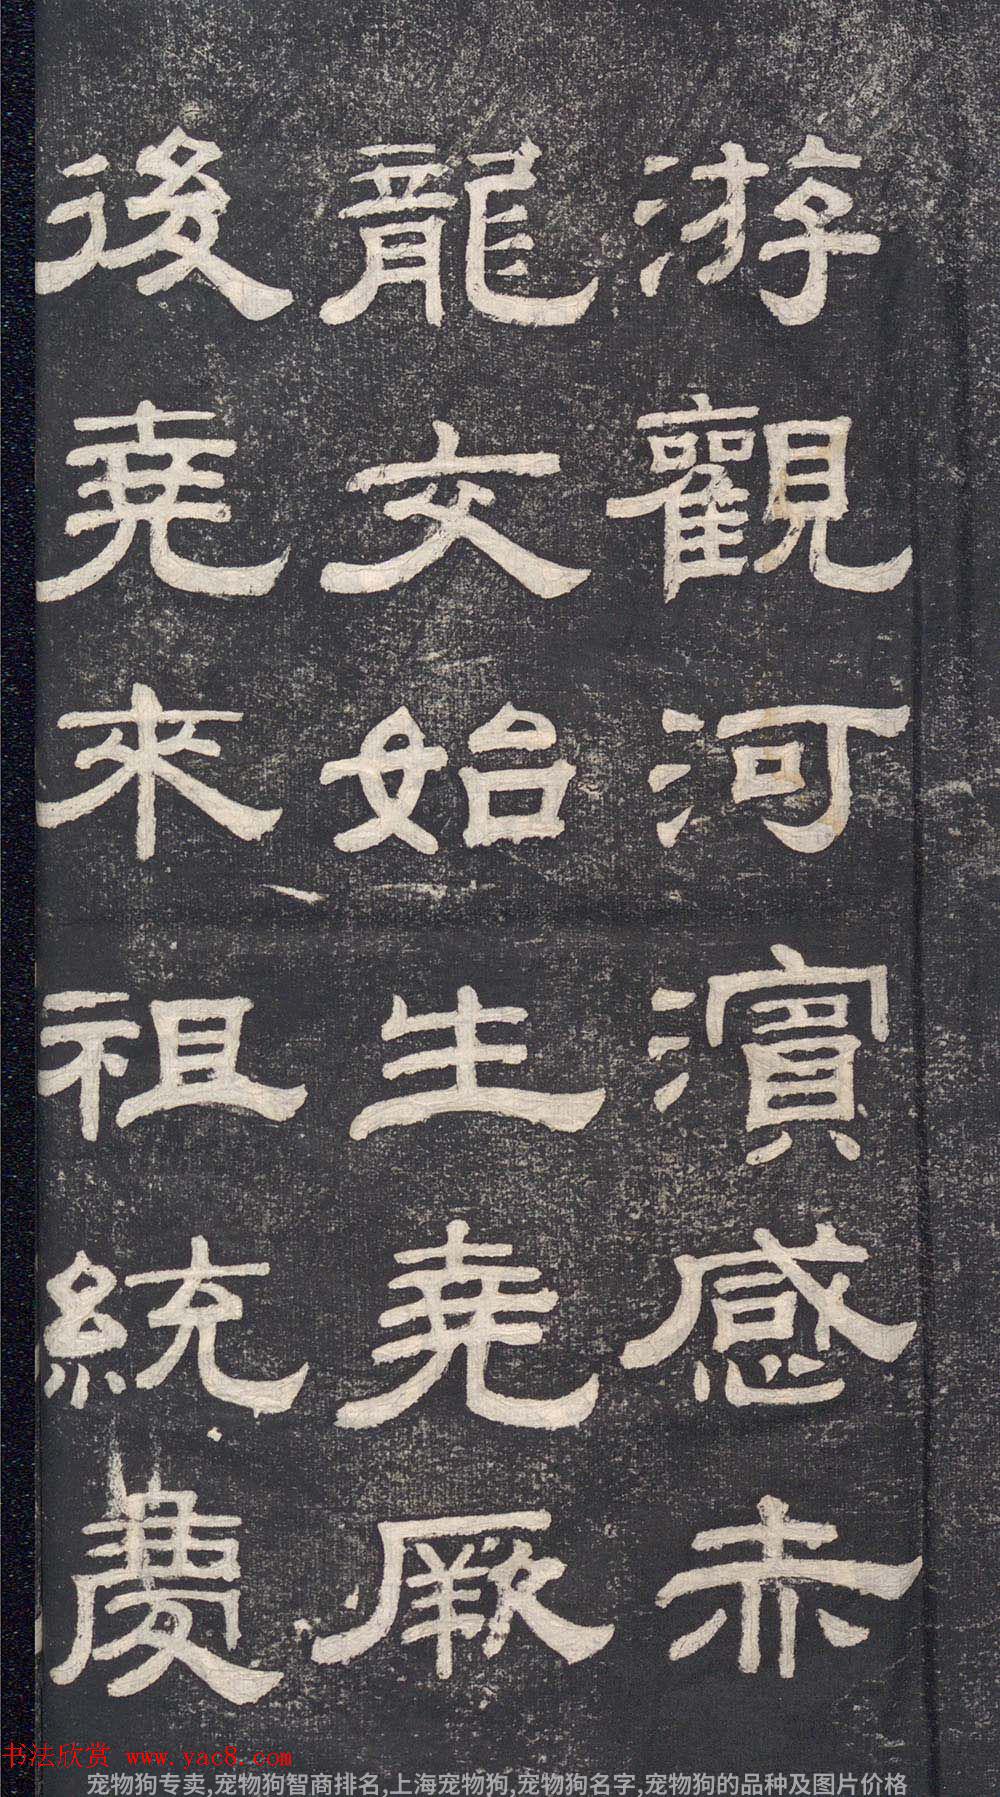 游觀河濱感赤
龍文始生堯厥
後堯來祖統慶
书法欣赏 www.yac8.com
宠物狗专卖,宠物狗智商排名,上海宠物狗,宠物狗名字,宠物狗的品种及图片价格